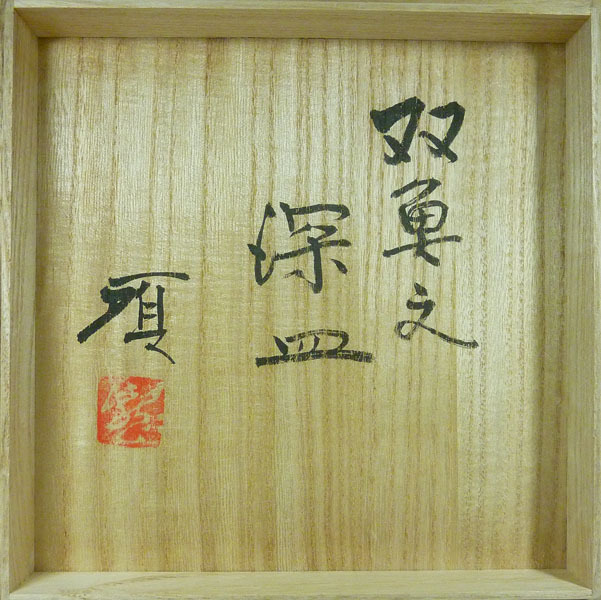 双魚文
深皿